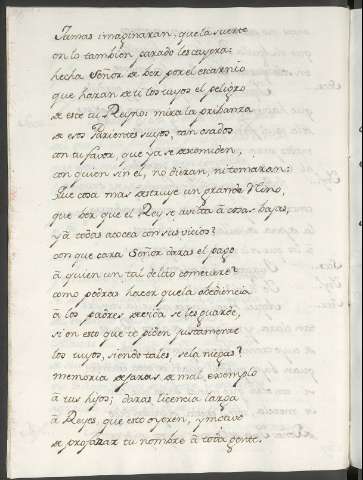 Jamas imaginaran, que la suerte
en lo tambien parado les cayera:
hecha Señor de ver por el escarnio
que haran de ti los tuyos el peligro
de este tu Reyno: mira la pribanza
de estos Parientes suyos, tan osados
con tu favor, que ya se descomiden,
con quien sin el, no dieran, ni tomaran:
Que cosa mas destruye un grande Reino,
que ver que el Rey se avista à cosas bajas,
y à todos acocea con sus vicios?
con que cara Señor daras el pago
à quien un tal delito cometiere?
como podras hacer que la obediencia
à los padres devida se les guarde,
si en esto que te piden justamente
los tuyos, siendo tales, se la niegas?
memoria dejaras de mal exemplo
à tus hijos; daras licencia larga
à Reyes, que esto oyeren, y motivo
de profazar tu nombre à toda gente.